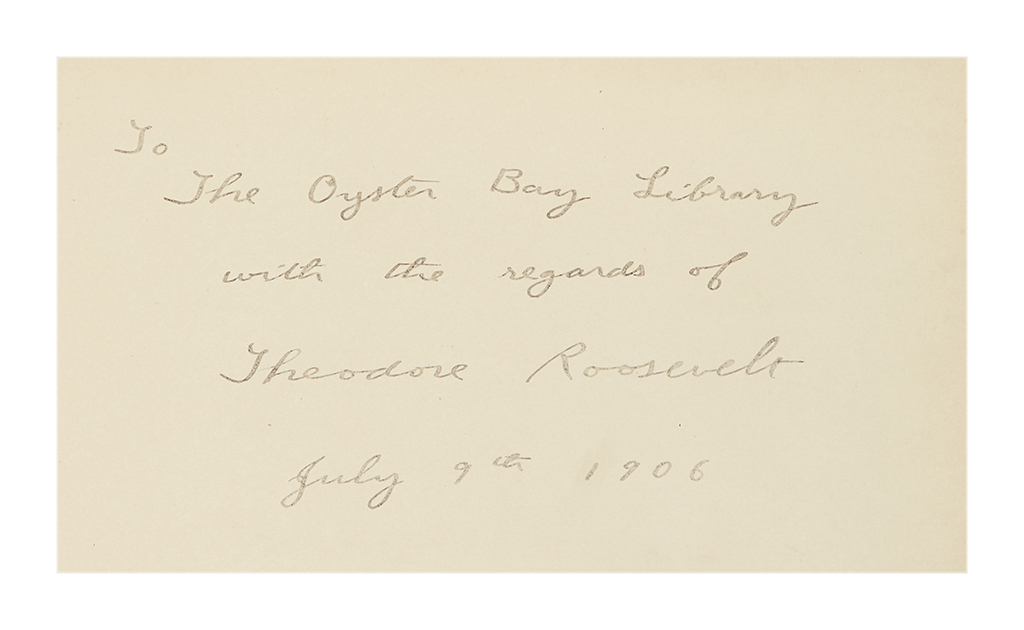 To
The Oyster Bay Library
with the regards of
Theodore Roosevelt
July 9th 1906